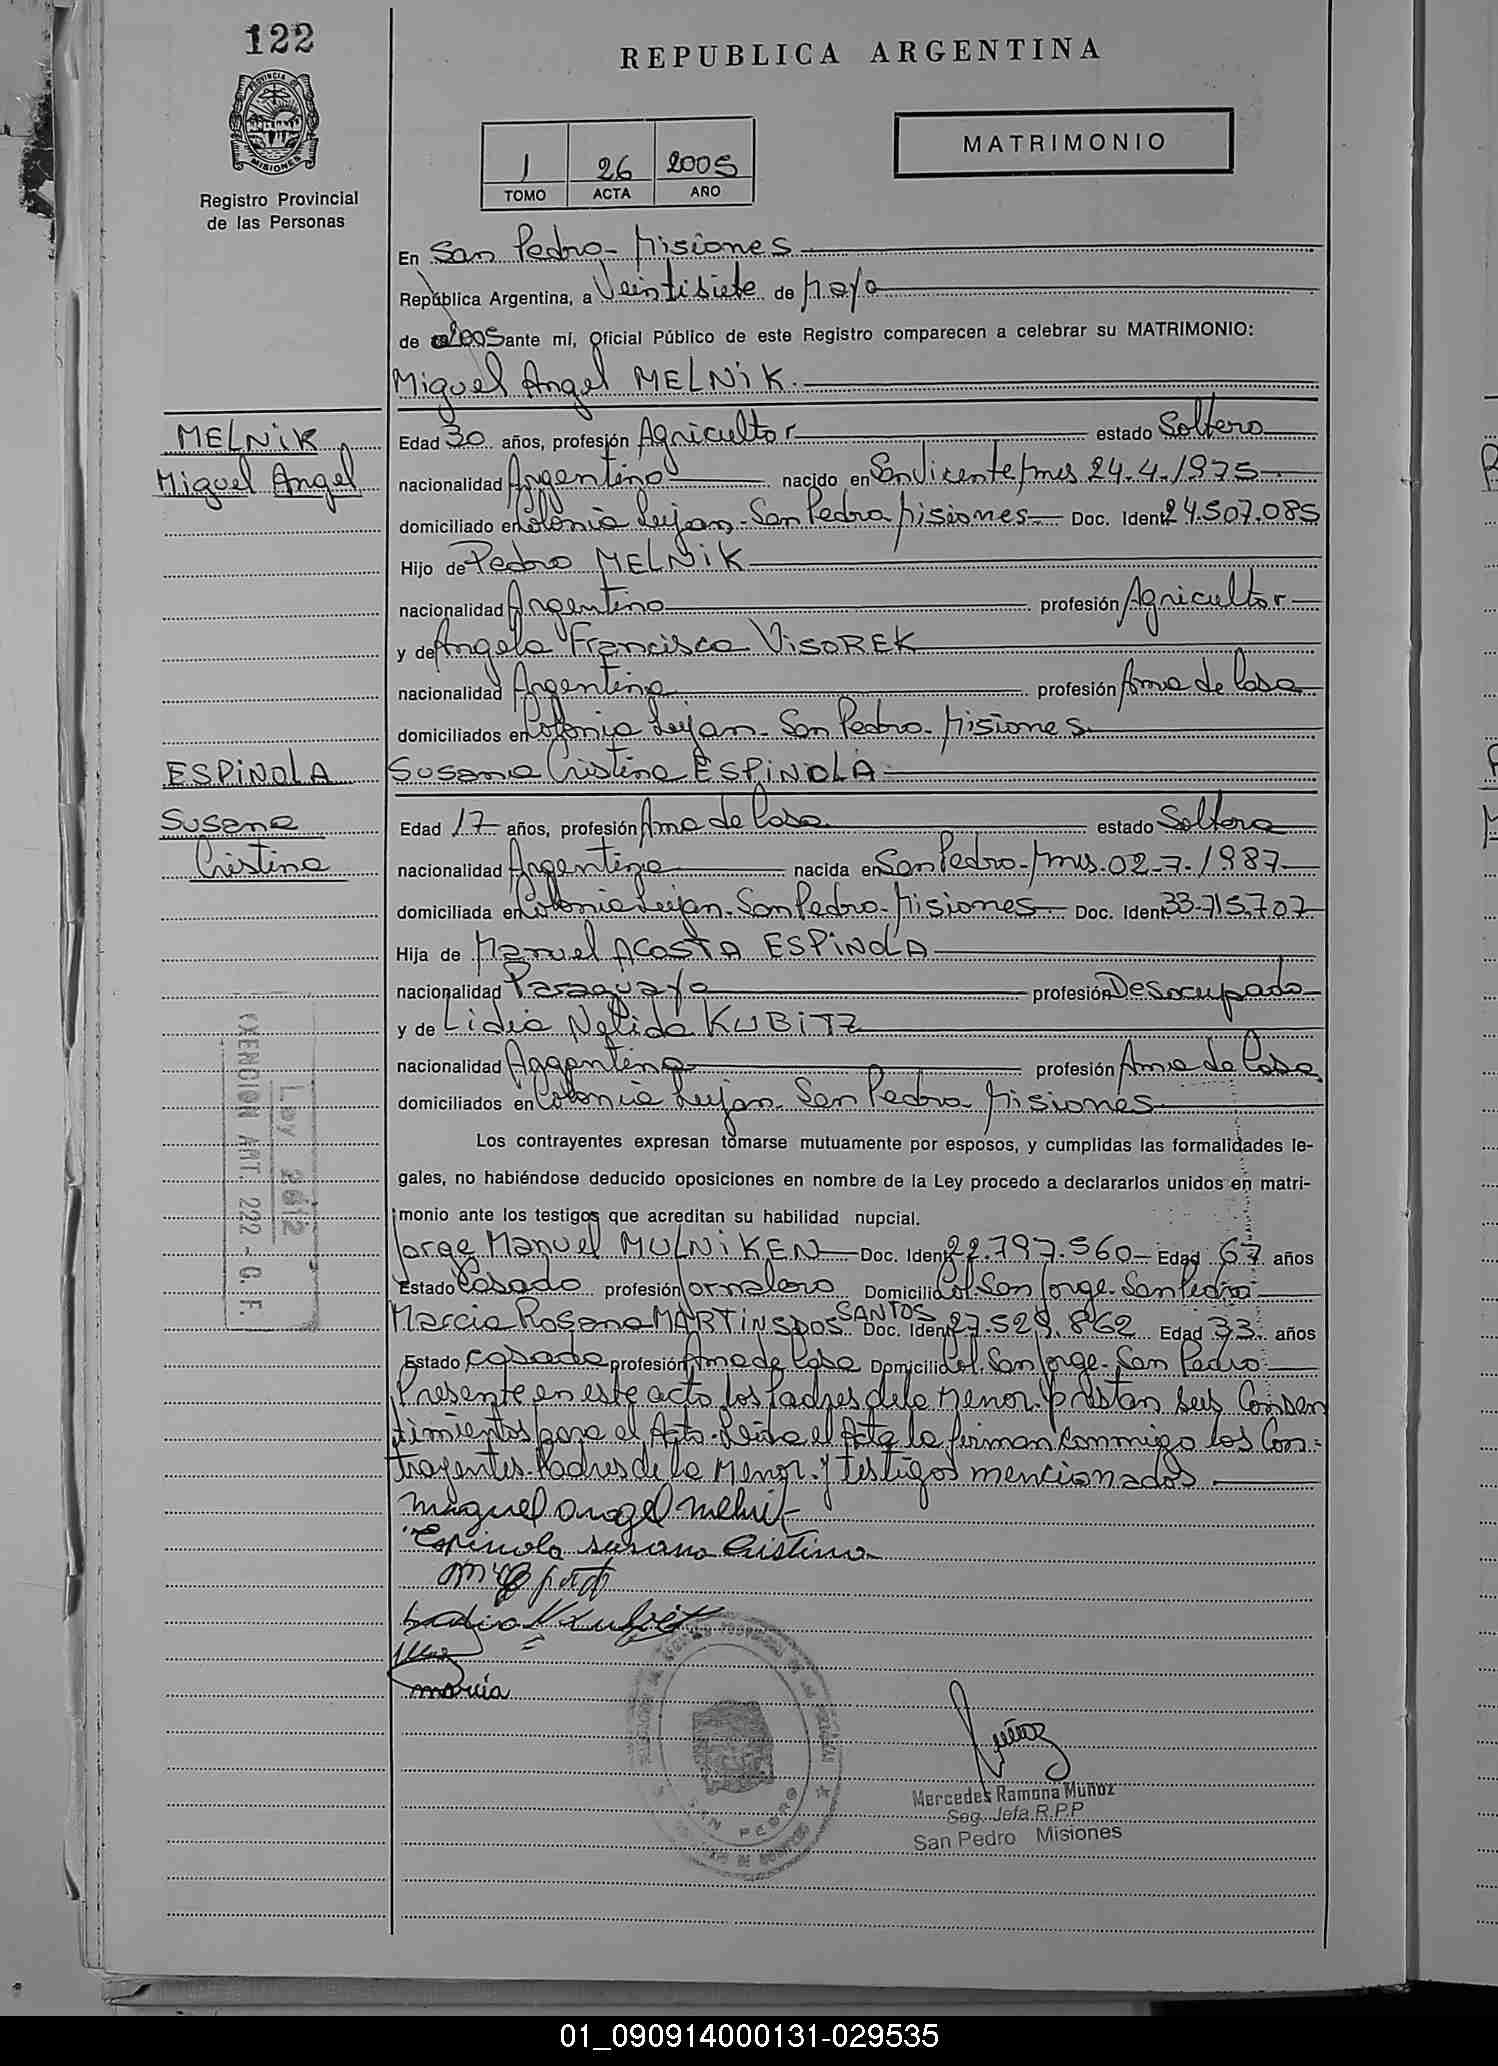 122
REPUBLICA ARGENTINA
PROVINCIA DE
MISIONES
MATRIMONIO
1 26 2005
TOMO ACTA AÑO
Registro Provincial
de las Personas
En San Pedro - Misiones
República Argentina, a Veintisiete de Mayo
de 2005 ante mí, Oficial Público de este Registro comparecen a celebrar su MATRIMONIO:
Miguel Angel MELNiK
MELNiK
Miguel Angel
Edad 30 años, profesión Agricultor estado Soltero
nacionalidad Argentino nacido en San Vicente/Mnes 24.4./1975
domiciliado en Colonia Lujan - San Pedro Misiones Doc. Ident. 24.507.085
Hijo de Pedro MELNiK
nacionalidad Argentino profesión Agricultor
y de Angela Francisca ViSOREK
nacionalidad Argentina profesión Ama de Casa
domiciliados en Colonia Lujan - San Pedro - Misiones
ESPiNOLA
Susana
Cristina
Susana Cristina ESPiNOLA
Edad 17 años, profesión Ama de Casa estado Soltera
nacionalidad Argentina nacida en San Pedro - Mnes. 02-7-/1987
domiciliada en Colonia Lujan - San Pedro - Misiones Doc. Ident. 33.715.707
Hija de Manuel ACOSTA ESPiNOLA
nacionalidad Paraguayo profesión Desocupado
y de Lidia Nelida KUBiTZ
nacionalidad Argentina profesión Ama de Casa
domiciliados en Colonia Lujan - San Pedro Misiones
Ley 2612
EXENCION AMT. 222 - C. F.
Los contrayentes expresan tomarse mutuamente por esposos, y cumplidas las formalidades le-
gales, no habiéndose deducido oposiciones en nombre de la Ley procedo a declararlos unidos en matri-
monio ante los testigos que acreditan su habilidad nupcial.
Jorge Manuel MULNiKEN Doc. Ident. 22.797.560 Edad 67 años
Estado Casado profesión Jornalero Domicilio Col. San Jorge - San Pedro
Marcia Rosana MARTiNS DOS SANTOS Doc. Ident. 27.529.862 Edad 33 años
Estado casada profesión Ama de Casa Domicilio Col. San Jorge - San Pedro
Presente en este acto los Padres de la Menor. y prestan sus Consen
timientos para el Acto. Leida el Acta la firman conmmigo los Con-
trayentes. Padres de la Menor. y testigos mencionados
miguel angel melnik
Espinola susana Cristina
Lidia N Kubitz
marcia
SAN PEDRO
Muñoz
Mercedes Ramona Muñoz
Seg. Jefa R.P.P
San Pedro Misiones
01_090914000131-029535